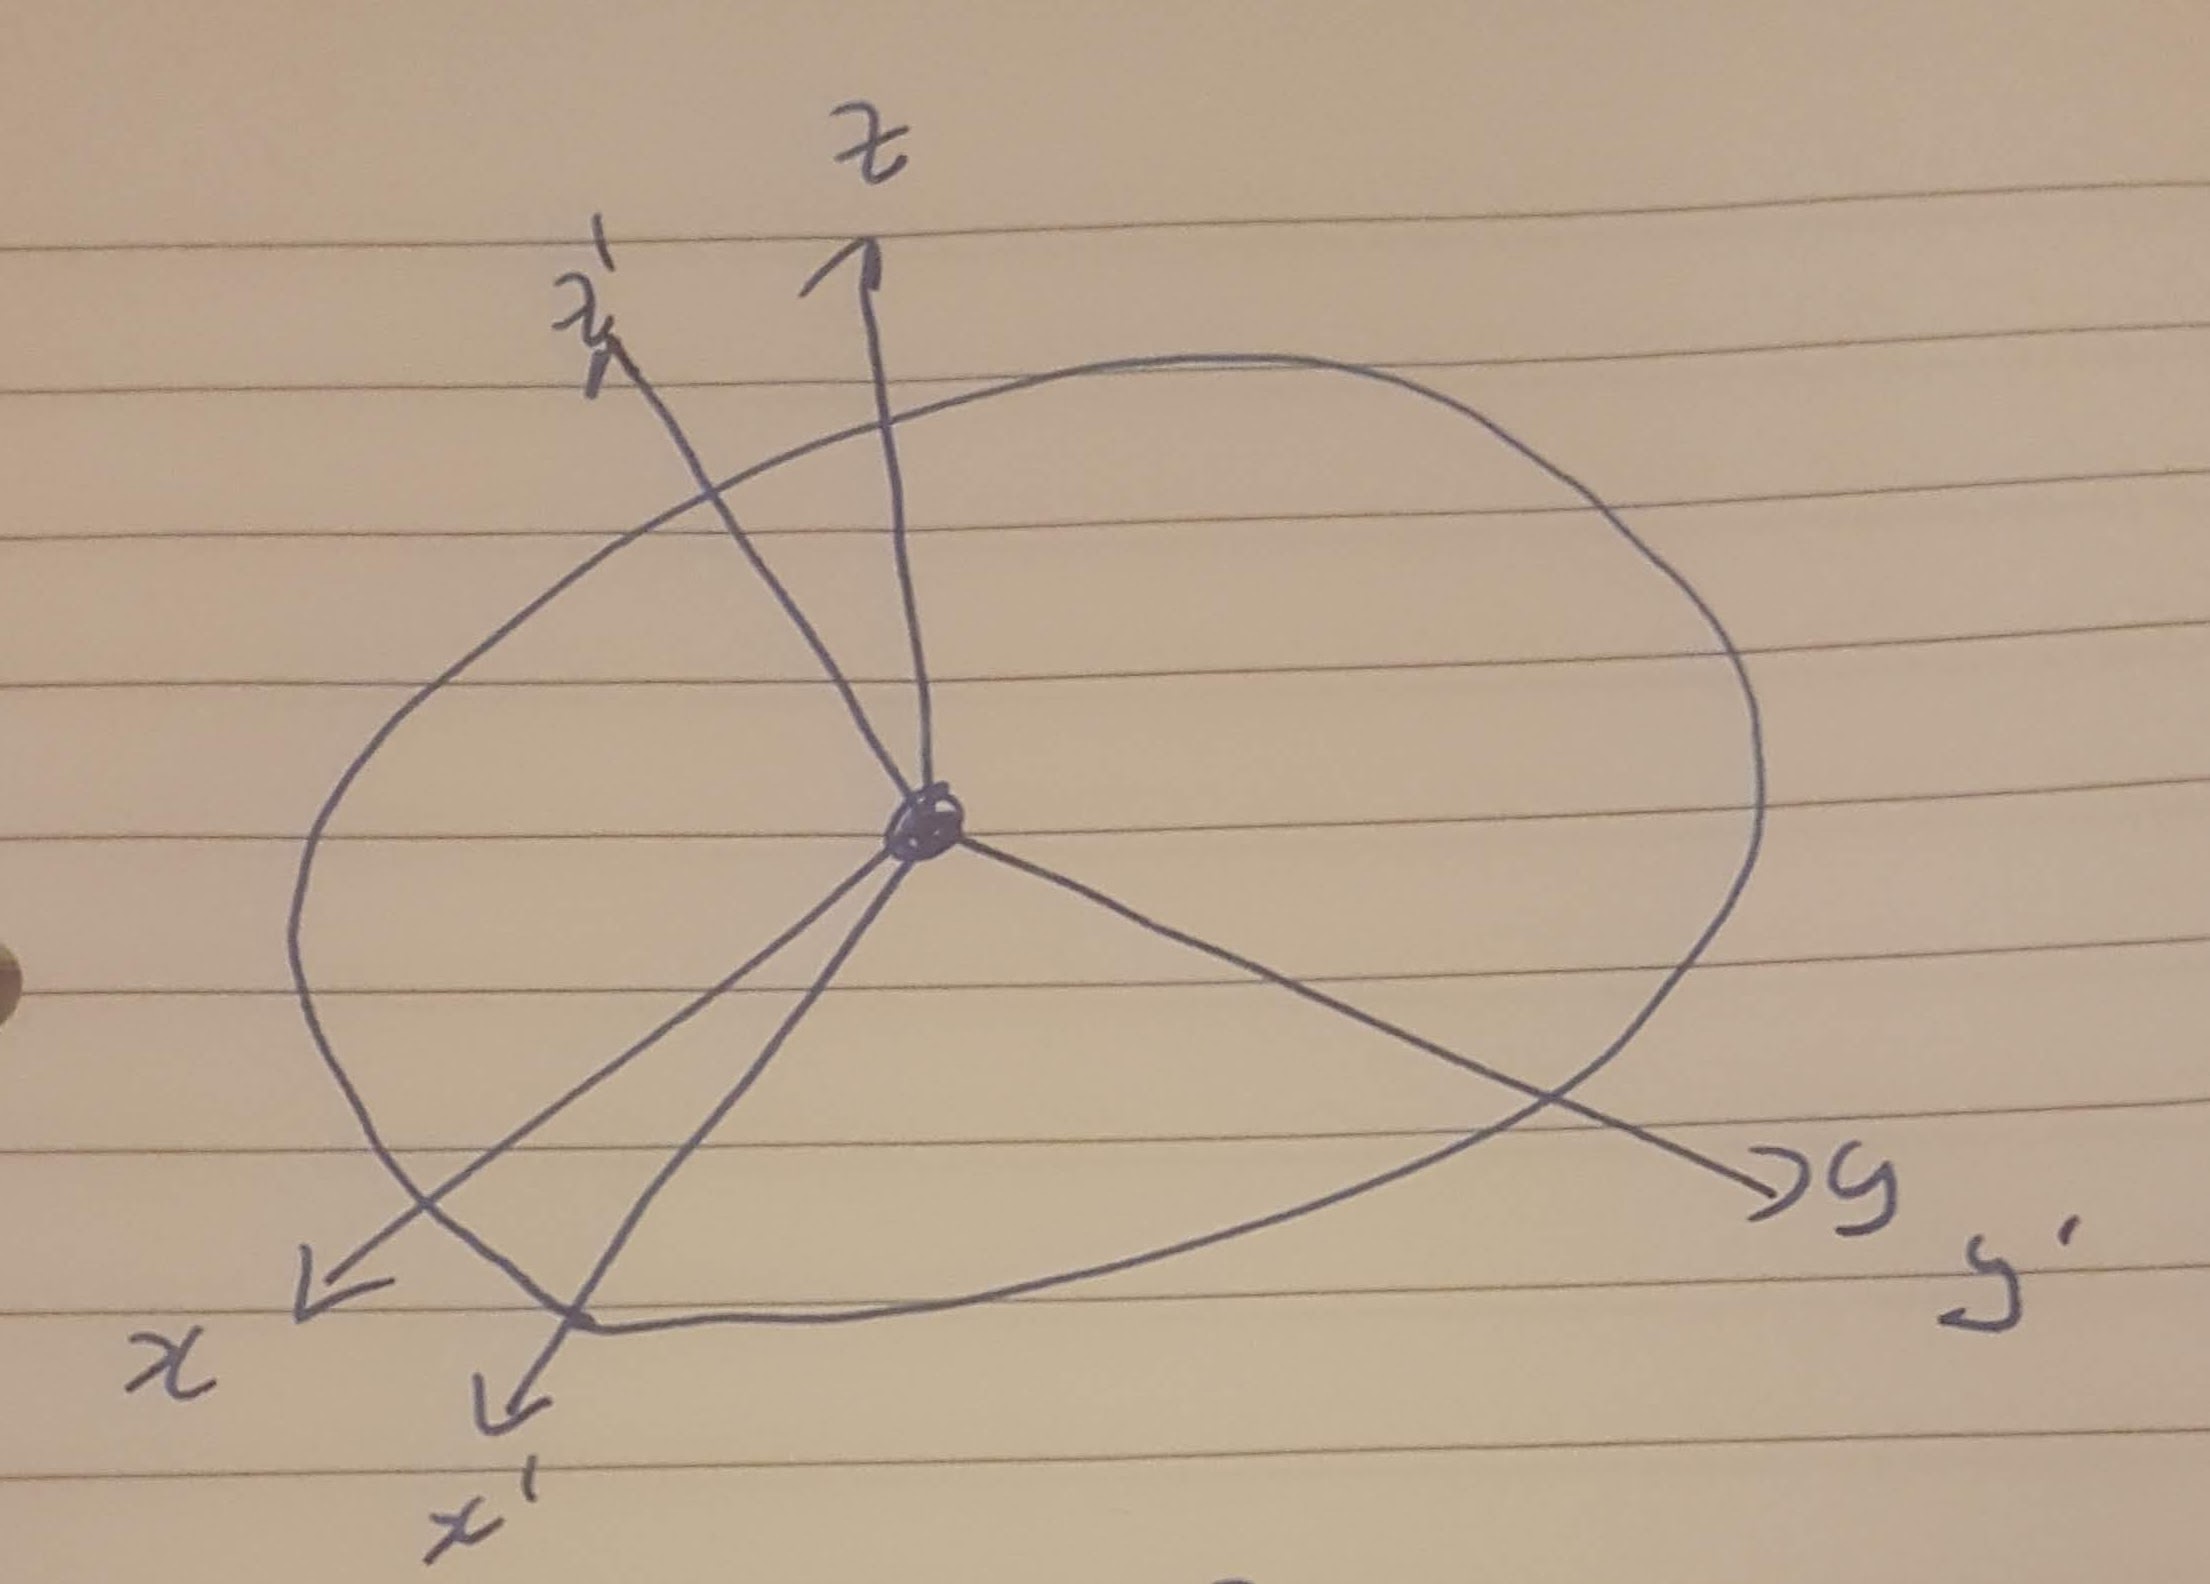 z
z'
y
y'
x
x'